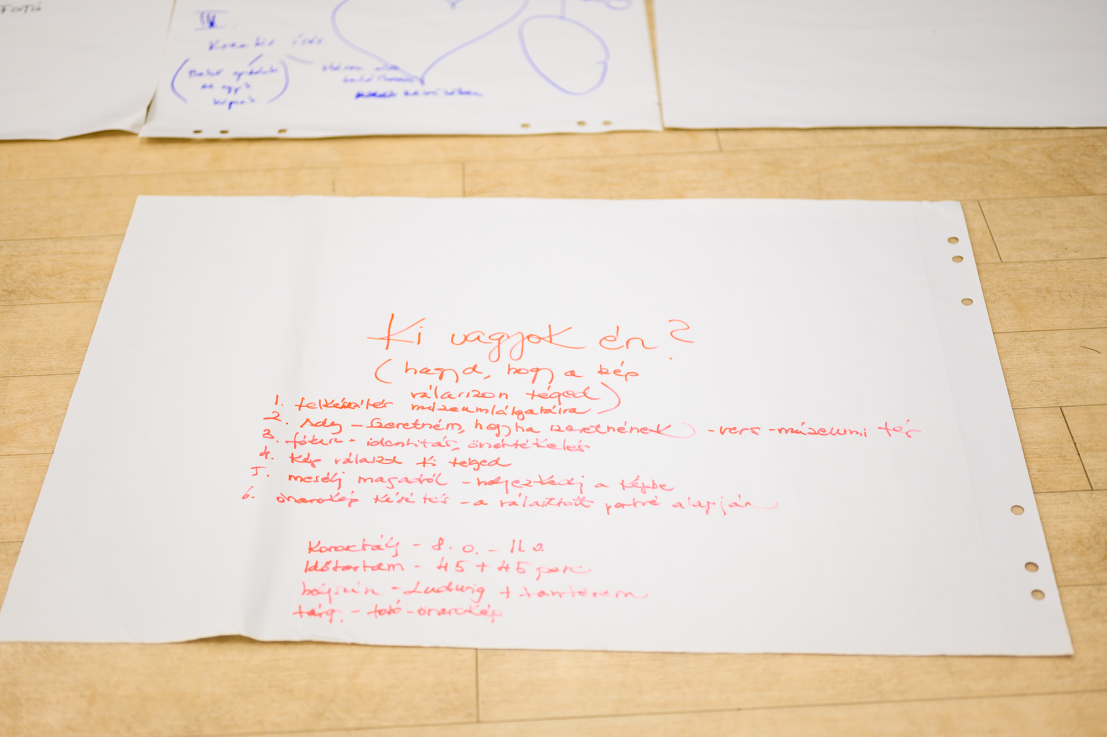 IV.
Kreatív írás
Ki vagyok én?
(hagyd, hogy a kép
válasszon téged)
1. felkészítés múzeumlátogatásra
2. Ady - Szeretném, hogyha szeretnének) - vers - múzeumi tér
3. fókusz - identitás, önértékelés
4. Kép választ ki téged
5. mesélj magadról - helyezkedj a képbe
6. önarckép készítés - a választott portré alapján
Korosztály - 8. o. - 11. o
Időtartam - 45 + 45 perc
helyszín - Ludwig + tanterem
tárgy - fotó - önarckép